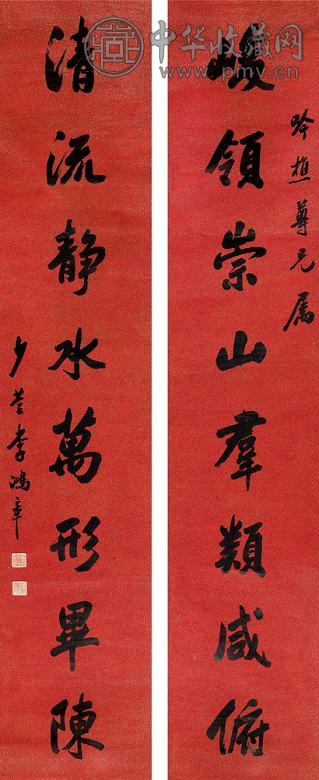 中华收藏网
www.pmv.cn
吟樵尊兄属
峻領崇山羣類咸俯
清流静水萬形畢陳
少荃李鴻章